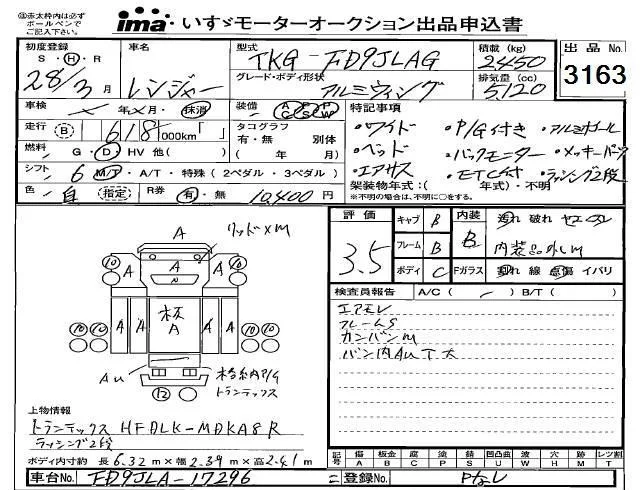 ㊟赤太枠内は必ず
ボールペンで
ご記入下さい。
ima いすゞモーターオークション出品申込書
初度登録 車名 型式 積載(kg) 出品No.
S・H・R TKG-FD9JLAG 2450
28/3月 レンジャー グレード・ボディ形状 排気量(cc) 3163
アルミウィング 5,120
車検 年 月・抹消 装備 AC PS PW 特記事項
走行 B 618,000km「 」 タコグラフ ・ワイド ・P/G付き ・アルミホイール
有・無 別体
燃料 G・D・HV 他( ) ( 年 月) ・ベッド ・バックモニター ・メッキパーツ
シフト 6 M/T・A/T・特殊(2ペダル・3ペダル) ・エアサス ・ETC付 ・ラッシング2段
架装物年式:( 年式)・不明
色 白 指定 R券 有・無 10,400円 ※不明の場合は、不明に○をする。
評価 キャブ B 内装 汚れ 破れ
3.5 フレーム B B 内装品外しM
ボディ C Fガラス 割れ 線 点傷 イパリ
A リッドメM
検査員報告 A/C( ) B/T( )
エアモレ
フレームS
カンバンM
バン内AU T大
⑩ A A A ⑩
A N A
⑩⑩ A A 板A A A ⑩⑩
AU 格納P/G
⑫ トランテックス
上物情報
トランテックス HFDLK-MDKA8R
ラッシング2段
ボディ内寸約 長 6.32m×幅 2.39m×高 2.41m
記号 傷 板金 腐 塗 錆 凹凸曲 波 穴 目 レツ割
A B C P S U W H M T
車台No. FD9JLA-17296 登録No. Pなし